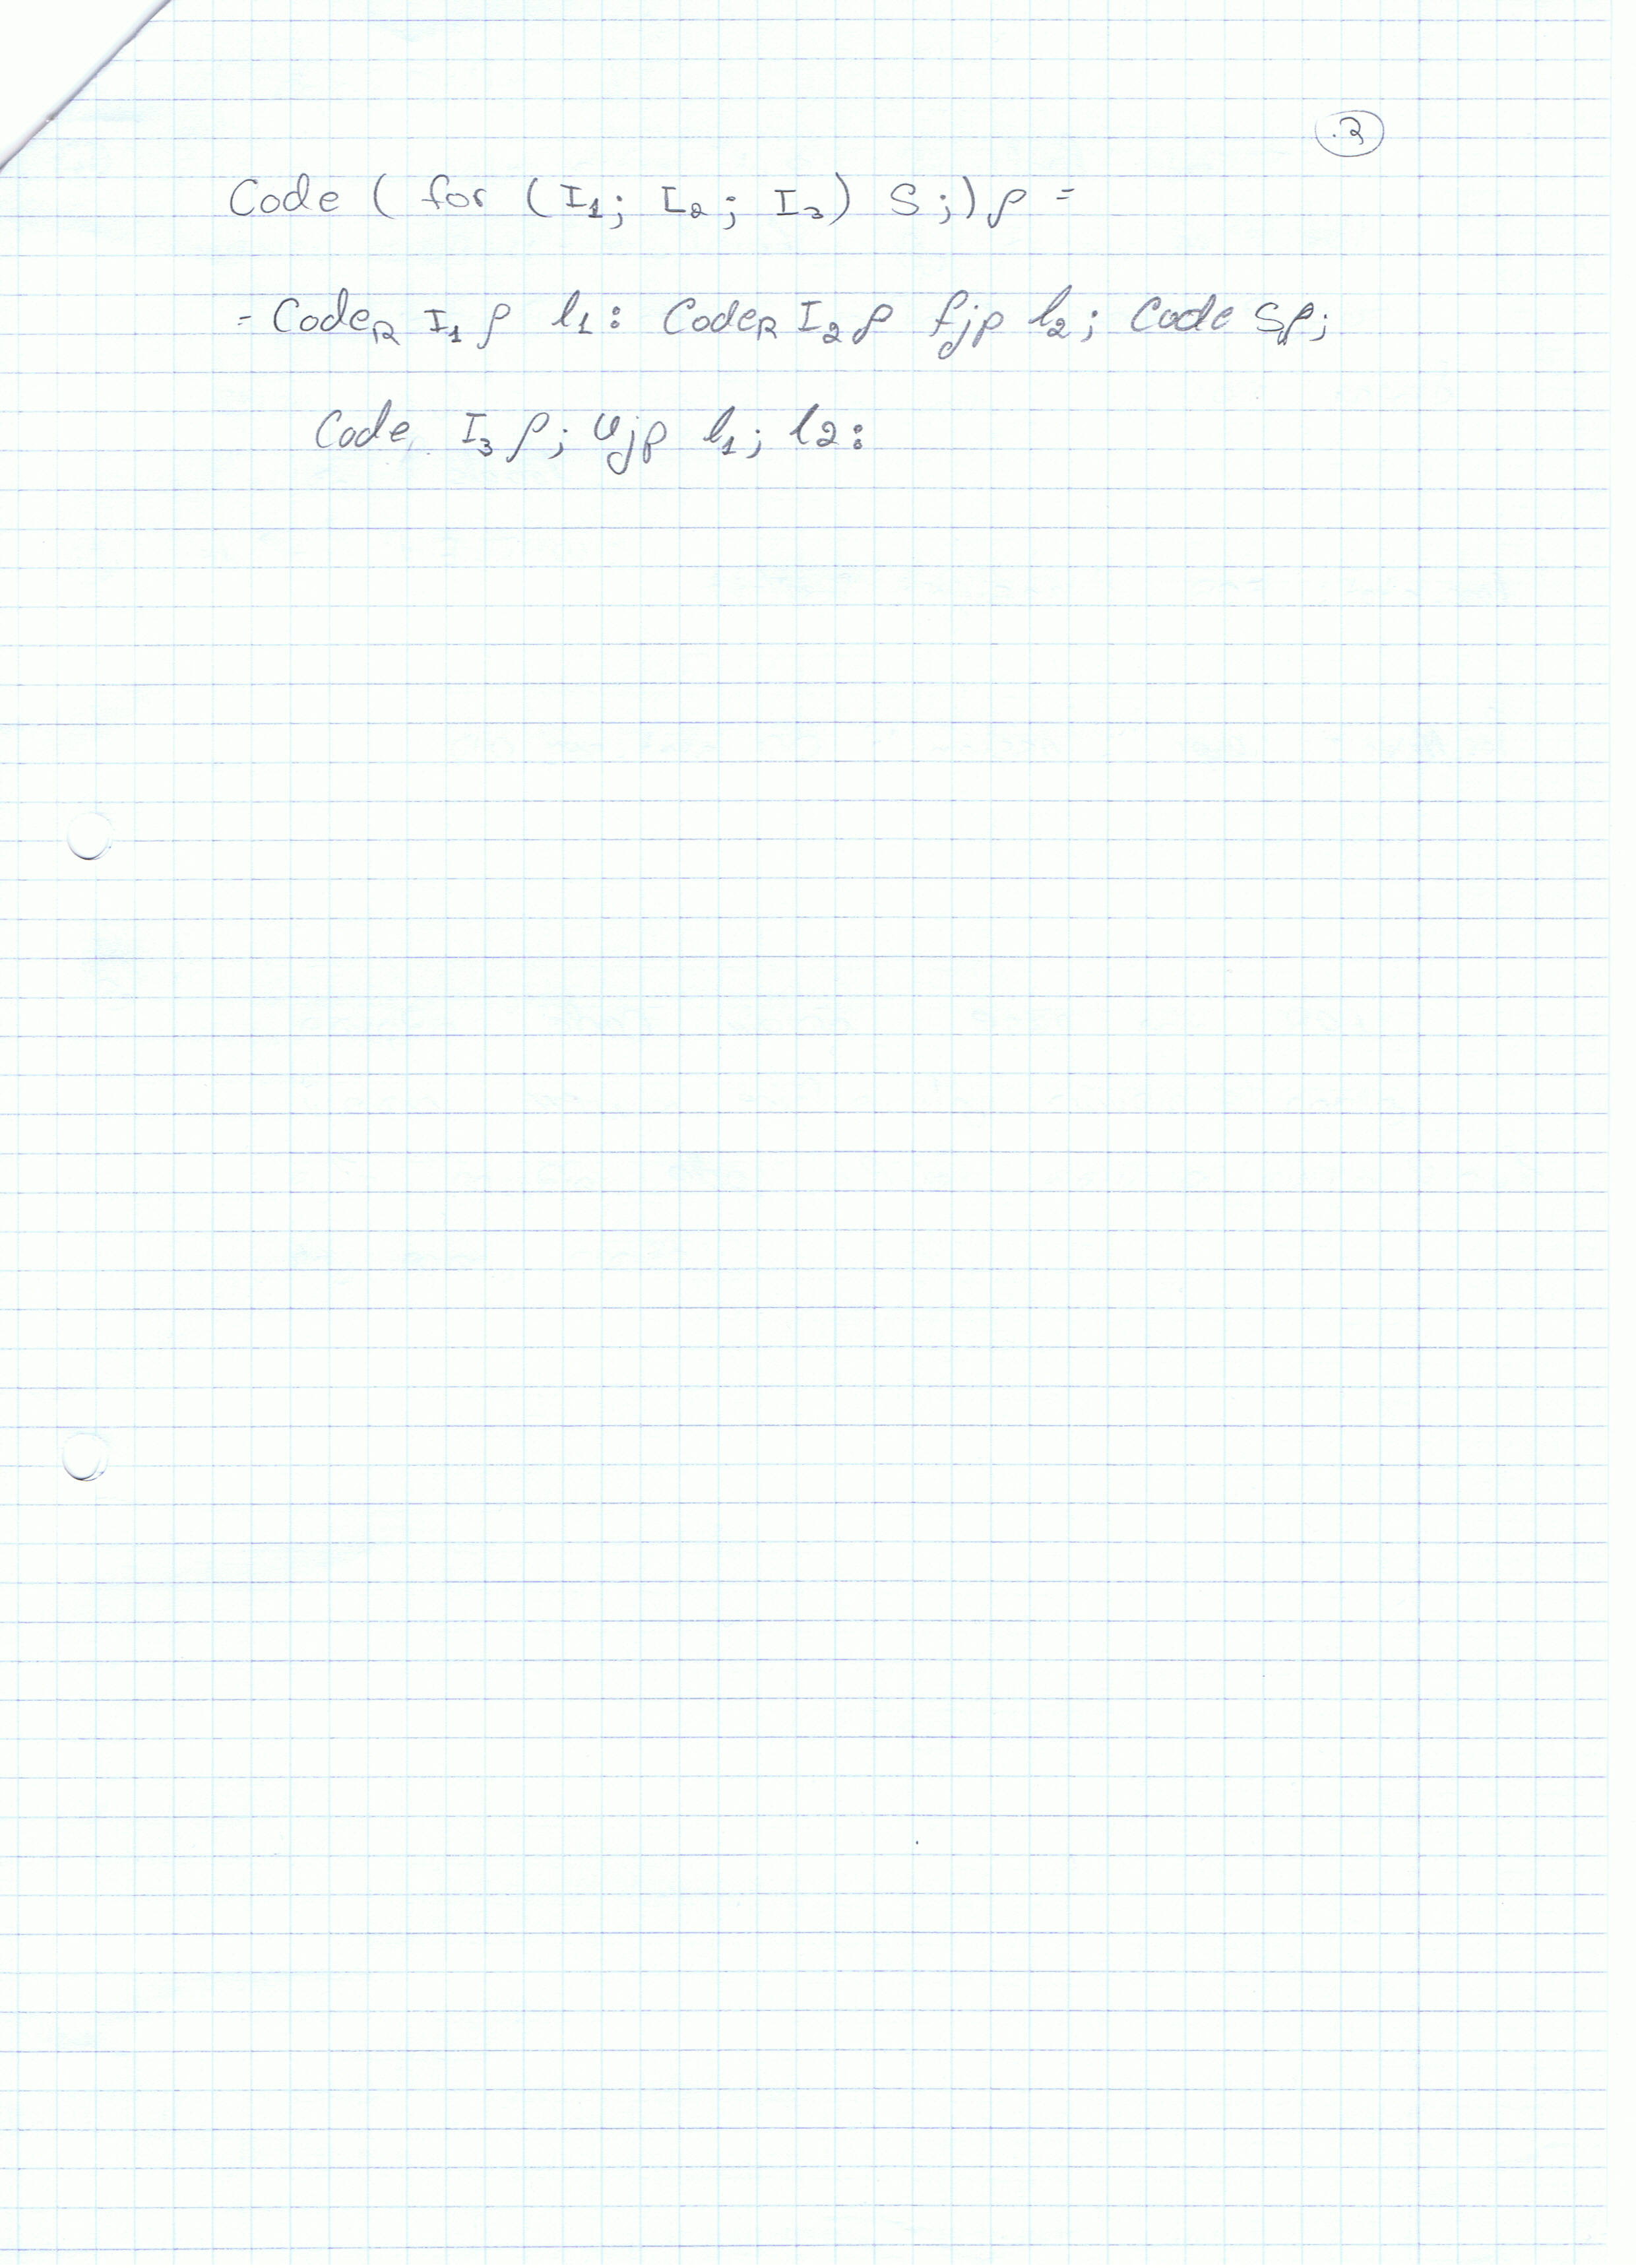 .3
Code ( for (I₁; I₂; I₃) S;) ρ =
= Code_R I₁ ρ l₁: Code_R I₂ ρ fjp l₂; Code Sρ;
Code I₃ ρ; ujp l₁; l₂: